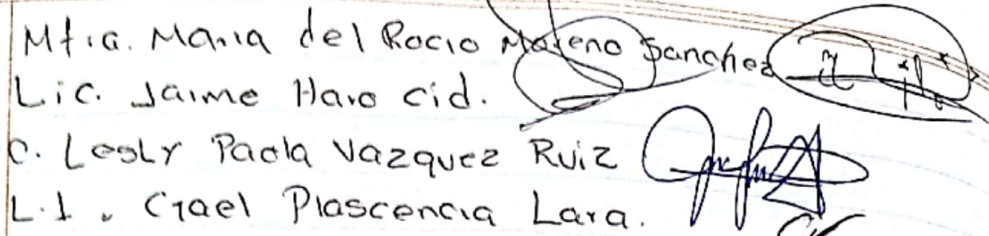 Mtra. Maria del Rocio Moreno Sanchez
Lic. Jaime Haro Cid.
C. Lesly Paola Vazquez Ruiz
L.I. Gael Plascencia Lara.